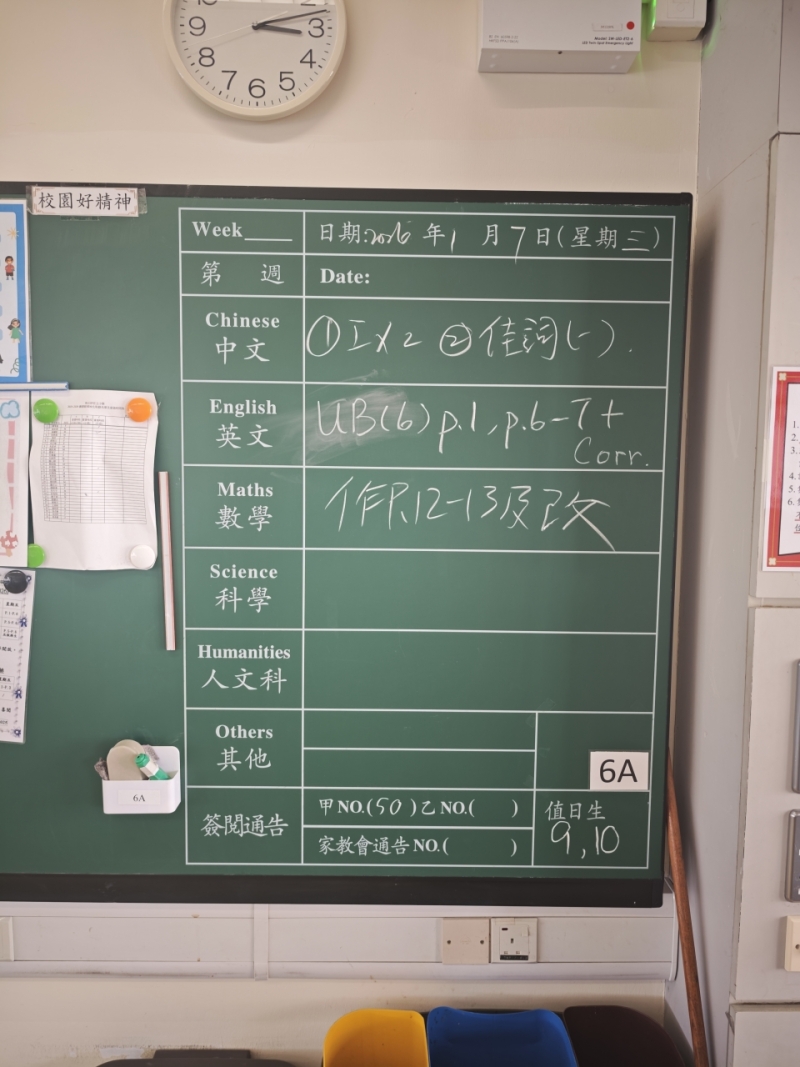 9 3
8 4
7 6 5
校園好精神
Week____ 日期:2026 年 1 月 7 日(星期三)
第 週 Date:
Chinese
中文
①工x2 ②佳詞(一).
English
英文
UB(6) p.1, p.6-7+
Corr.
Maths
數學
作P.12-13及改
Science
科學
Humanities
人文科
Others
其他
6A
簽閱通告
甲NO.(50)乙NO.( )
家教會通告NO.( )
值日生
9,10
6A